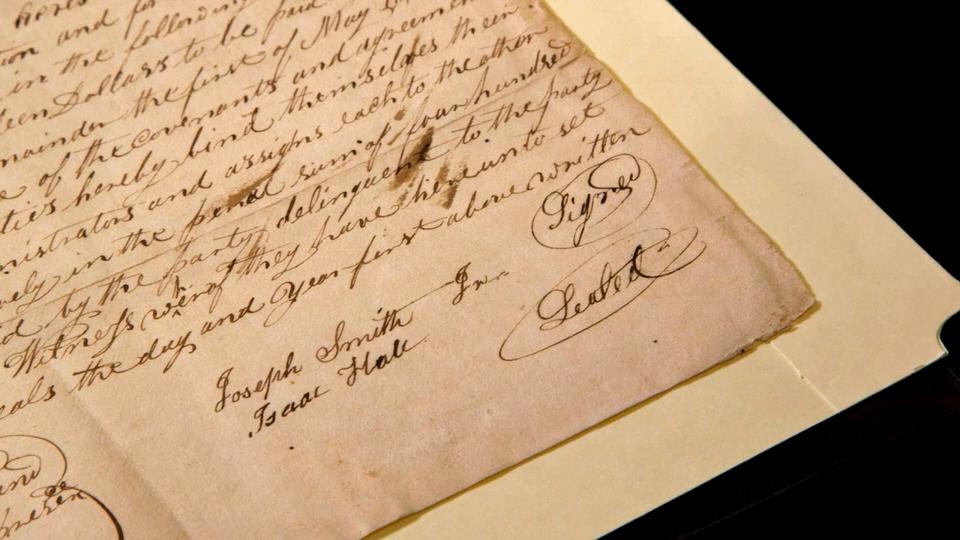 heres
tion and for
in the following
teen Dollars to be paid
mainder the first of May
e of the covenants and agreemen
ties hereby bind themselves their
nistrators and assigns each to the other
vely in the penal sum of four hundred
d by the party delinquent to the party
Witness wherof they have hereunto set
eals the day and Year first above written
Joseph Smith Jr
Isaac Hale
Signed
Sealed